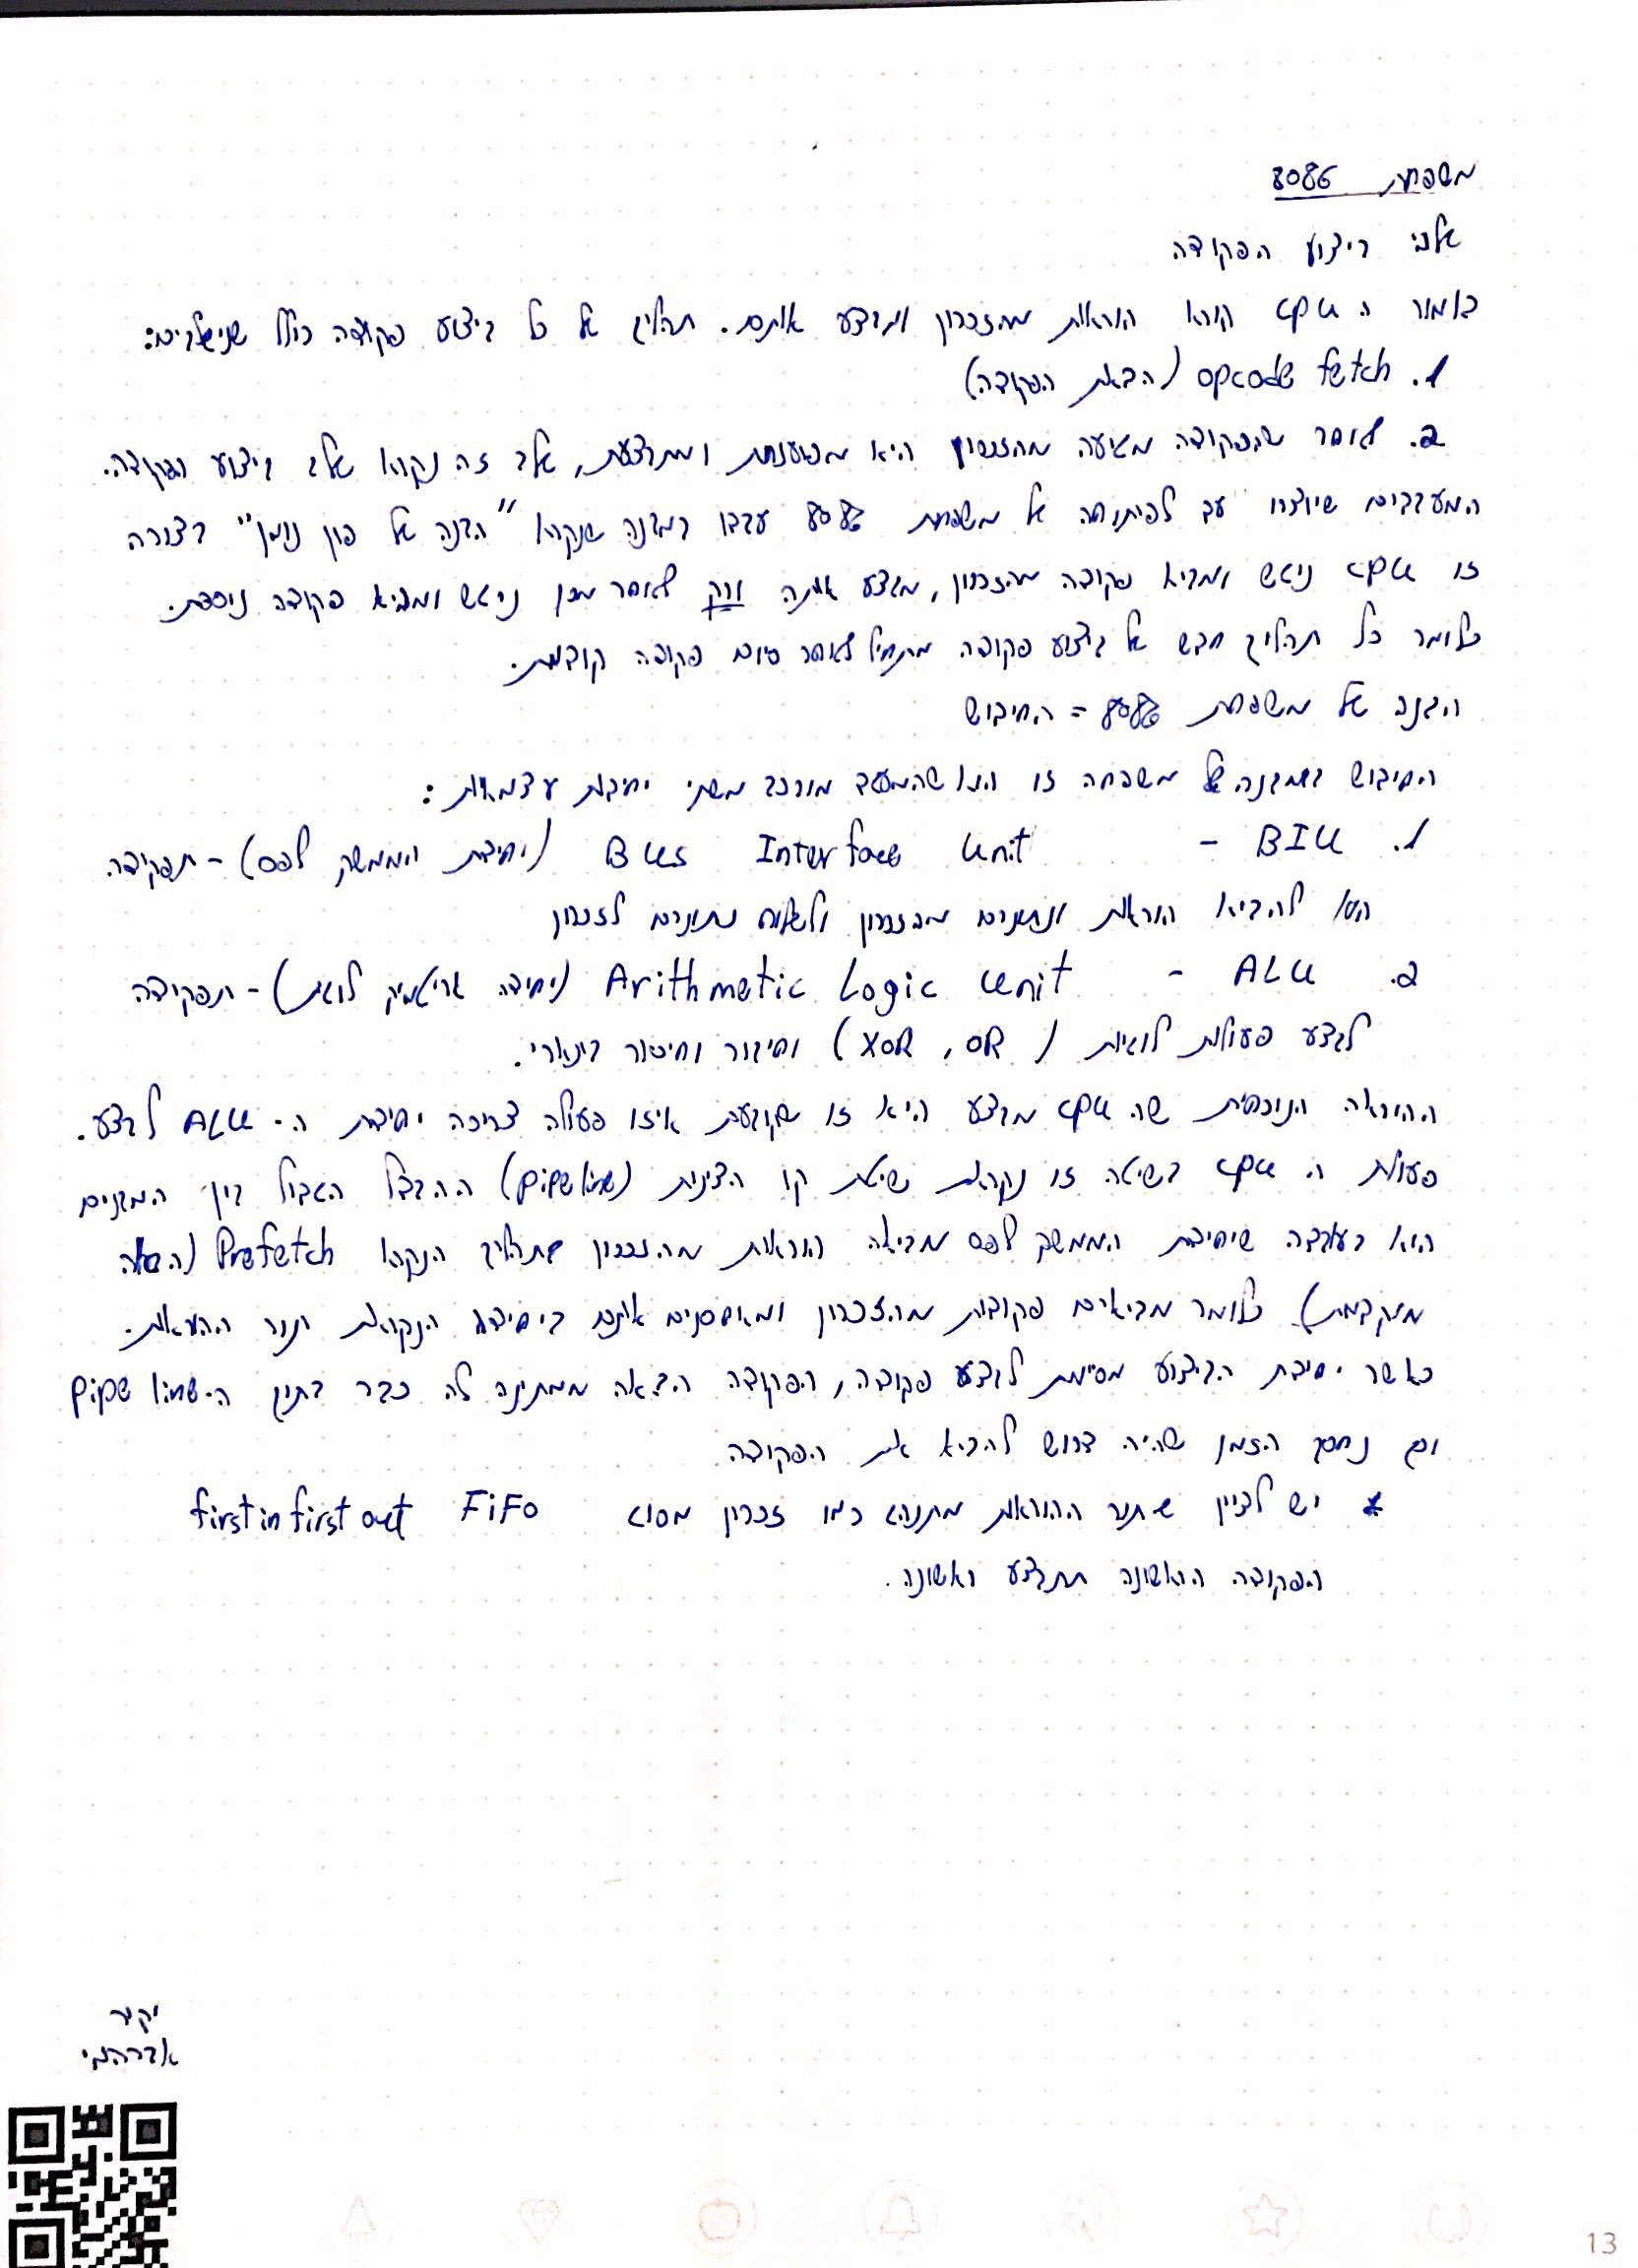 משפחת 8086
שלבי ביצוע הפקודה
כאמור ה cpu קורא הוראות מהזכרון ומבצע אותם. תהליך של כל ביצוע פקודה כולל שני שלבים:
1. opcode fetch (הבאת הפקודה)
2. לאחר שהפקודה מגיעה מהזכרון היא מפוענחת ומתבצעת, שלב זה נקרא שלב ביצוע הפקודה.
המעבדים שיוצרו עד לפיתוחה של משפחת 8086 עבדו במבנה שנקרא "הבנה של פון נוימן" בצורה
זו cpu ניגש ומביא פקודה מהזכרון, מבצע אותה ורק לאחר מכן ניגש ומביא פקודה נוספת.
כלומר כל תהליך חדש של ביצוע פקודה מתחיל לאחר סיום פקודה קודמת.
הבנה של משפחת 8086 = החידוש
החידוש במבנה של משפחה זו הוא שהמעבד מורכב משתי יחידות עצמאיות:
1. BIU - Bus Interface Unit (יחידת הממשק לפס) - תפקידה
הוא להביא הוראות ונתונים מהזכרון ולשלוח נתונים לזכרון
2. ALU - Arithmetic Logic Unit (יחידה אריטמטיק לוגית) - תפקידה
לבצע פעולות לוגיות (XOR, OR) וחיבור וחיסור בינארי.
ההוראה הנוכחית שה cpu מבצע היא זו שקובעת איזו פעולה צריכה יחידת ה- ALU לבצע.
פעולת ה cpu בשיטה זו נקראת שיטת קו הצינור (pipeline) ההבדל הגדול בין המבנים
הוא בעובדה שיחידת הממשק לפס מביאה הוראות מהזכרון בתהליך הנקרא Prefetch (הבאה
מוקדמת) כלומר מביאים פקודות מהזכרון ומאחסנים אותם ביחידה הנקראת תור ההוראות.
כאשר יחידת הביצוע מסיימת לבצע פקודה, הפקודה הבאה ממתינה לה כבר בתוך ה-pipeline
וכך נחסך הזמן שהיה דרוש להביא את הפקודה
* יש לציין שתור ההוראות מתנהג כמו זכרון מסוג FiFo first in first out
הפקודה הראשונה תתבצע ראשונה.
יקיר
אברהמי
13